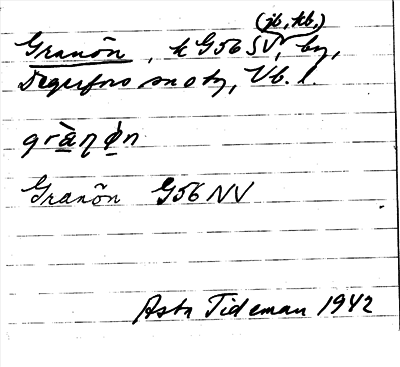 (jb, kb,)
Granön, k G56 SV, by,
Degerfors sn o tg, Vb. l.
grànø̀n
Granön G56 NV
Asta Tideman 1942